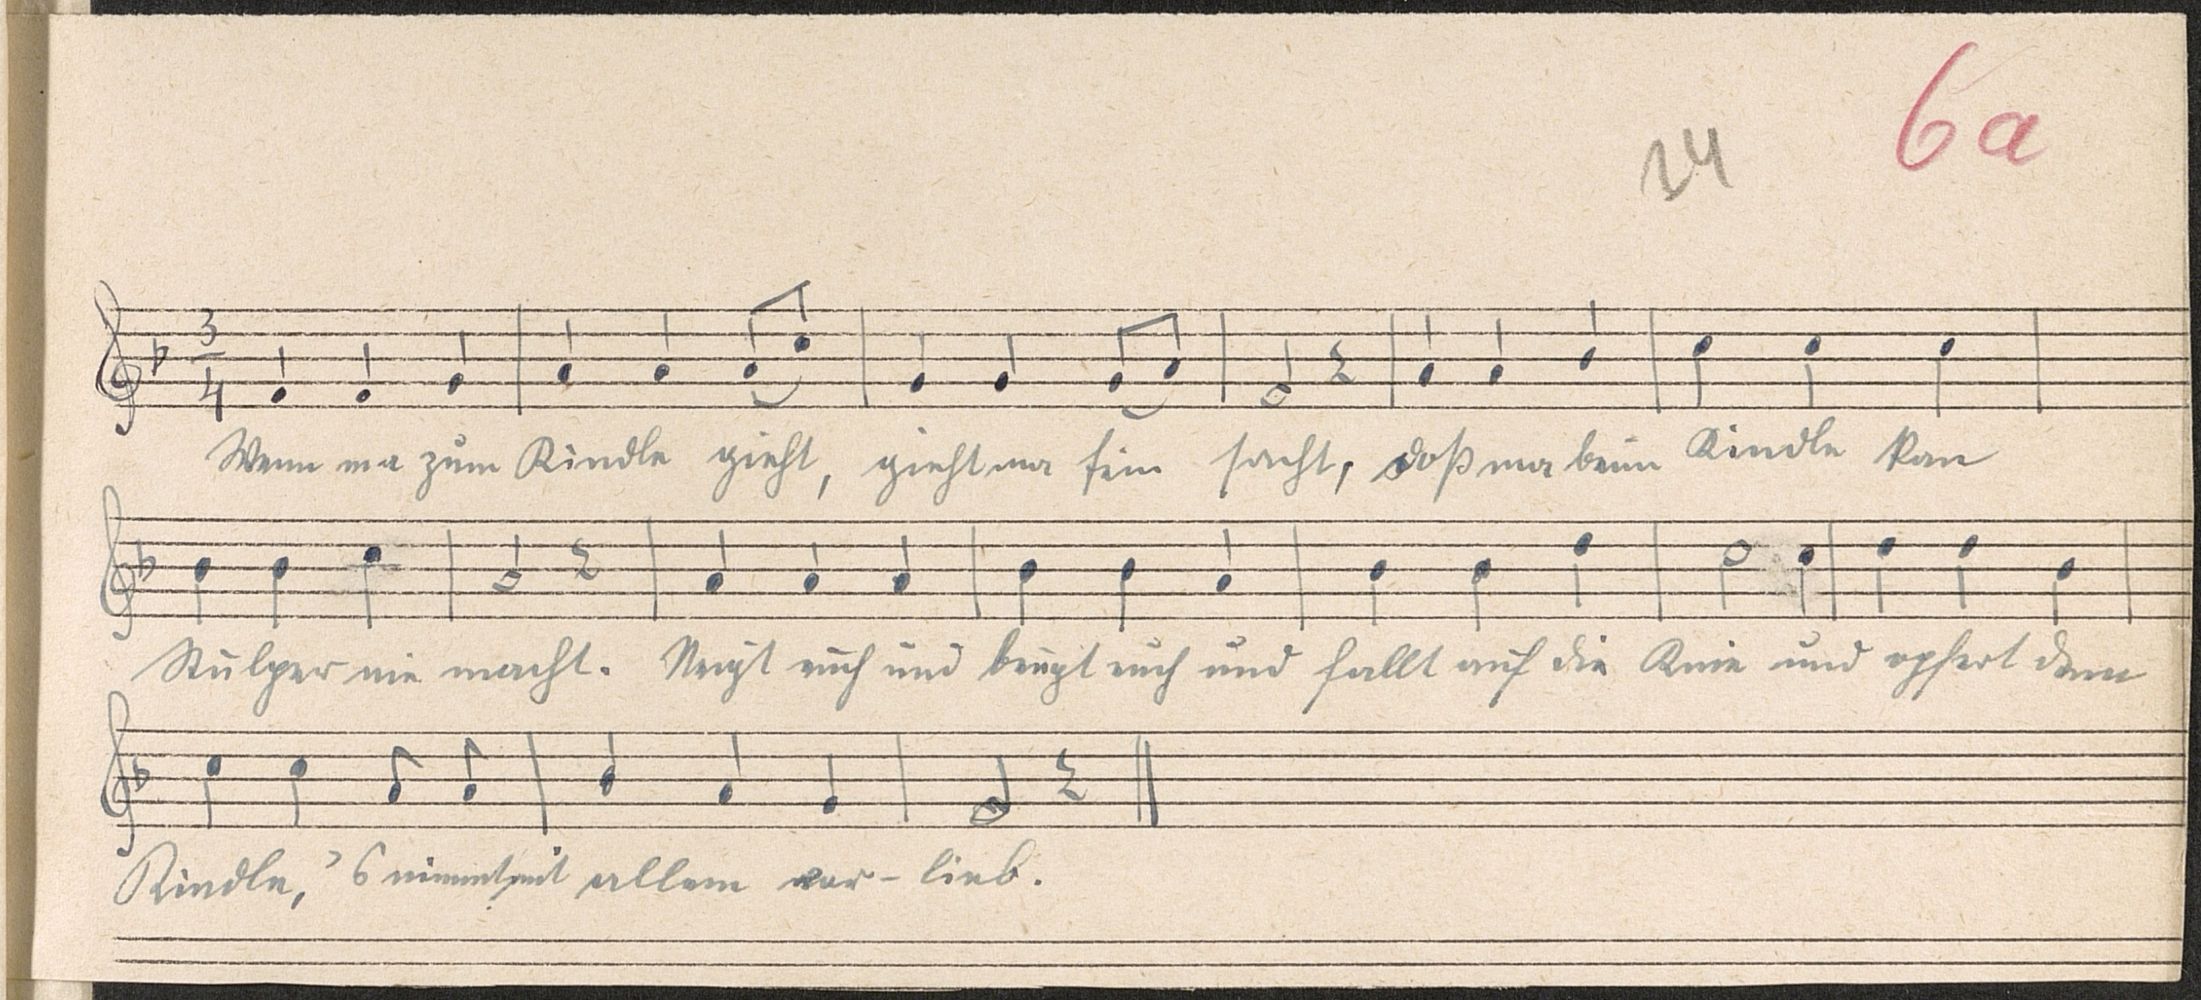 6a
14
3
4
Wenn ma zum Kindle gieht, gieht ma fein sacht, doß ma beim Kindle kan
Stulper nie macht. Neigt euch und beugt euch und fallt auf die Knie und opfert dem
Kindle, 's nimmt mit allem vor-lieb.